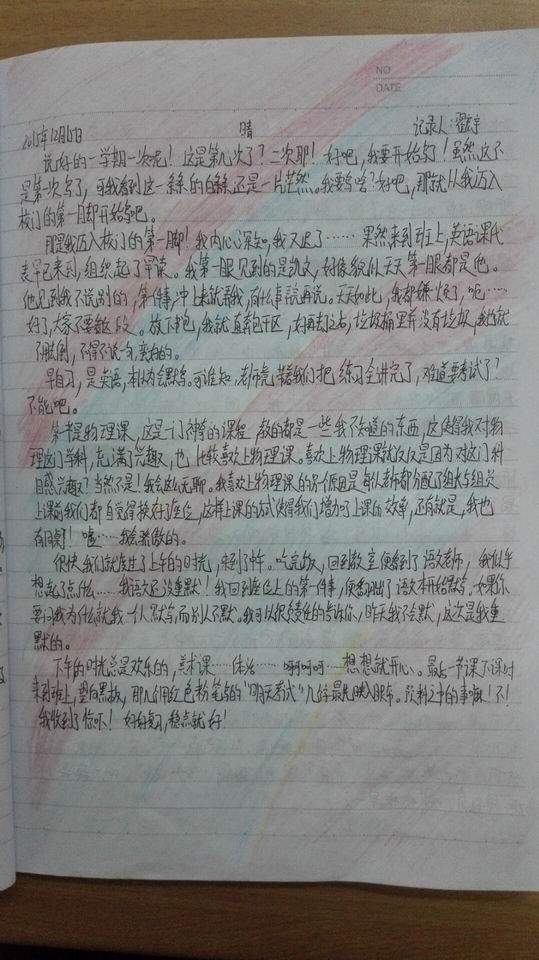 NO
DATE
2015年12月15日 晴 记录人:翟宇
说好的一学期一次呢!这是第几次了?二次耶!好吧,我要开始写了!虽然这不
是第一次写了,可我看到这一条条的白线还是一片茫然。我要写啥?好吧,那就从我迈入
校门的第一脚开始写吧。
那是我迈入校门的第一脚!我内心深知,我又迟了……果然来到班上,英语课代
表早已来到,组织起了早读。我第一眼见到的是凯文,好像貌似天天第一眼都是他。
他见到我不说别的,第一件事,冲上来就
有什么事请再说。天天如此,我都嫌烦了,呃……
好了,大家不要
放下书包,我就直奔包干区,
垃圾桶里并没有垃圾,
不用倒,不得不说句,蛮好的。
早自习,是英语,本以为会默写。可谁知,老师竟带着我们把练习全讲完了,难道要考试了?
不能吧。
第一节是物理课,这是一门神奇的课程,教的都是一些我不知道的东西,这使得我对物
理这门学科,充满了兴趣,也比较喜欢上物理课。喜欢上物理课就仅仅是因为对这门科
目感兴趣?当然不是!我会这么无聊。我喜欢上物理课的另个原因是每位老师都分配了组长与组员
上课前我们都自觉得换好了座位,这样上课的方式使得我们增加了上课的效率,还有就是,我也
有同桌了!嘘……我会害羞的。
很快我们就度过了上午的时光,来到了中午。吃完饭,回到教室便看到了语文老师,我似乎
想起了点什么……我语文还没重默!我回到座位上的第一件事,便拿出了语文本开始默写。如果你
要问我为什么就我一个人默写,而别人不默。我可以很负责任的告诉你,昨天我不会默,这次是我重
默的。
下午的时光总是欢乐的,美术课……体活……呵呵呵……想想就开心。最后一节课下课时
来到班上,望向黑板,那几个用红色粉笔写的“明天考试”几个字最先映入眼帘。意料之中的事嘛!不!
我收到了惊吓!好好复习,稳点就好!